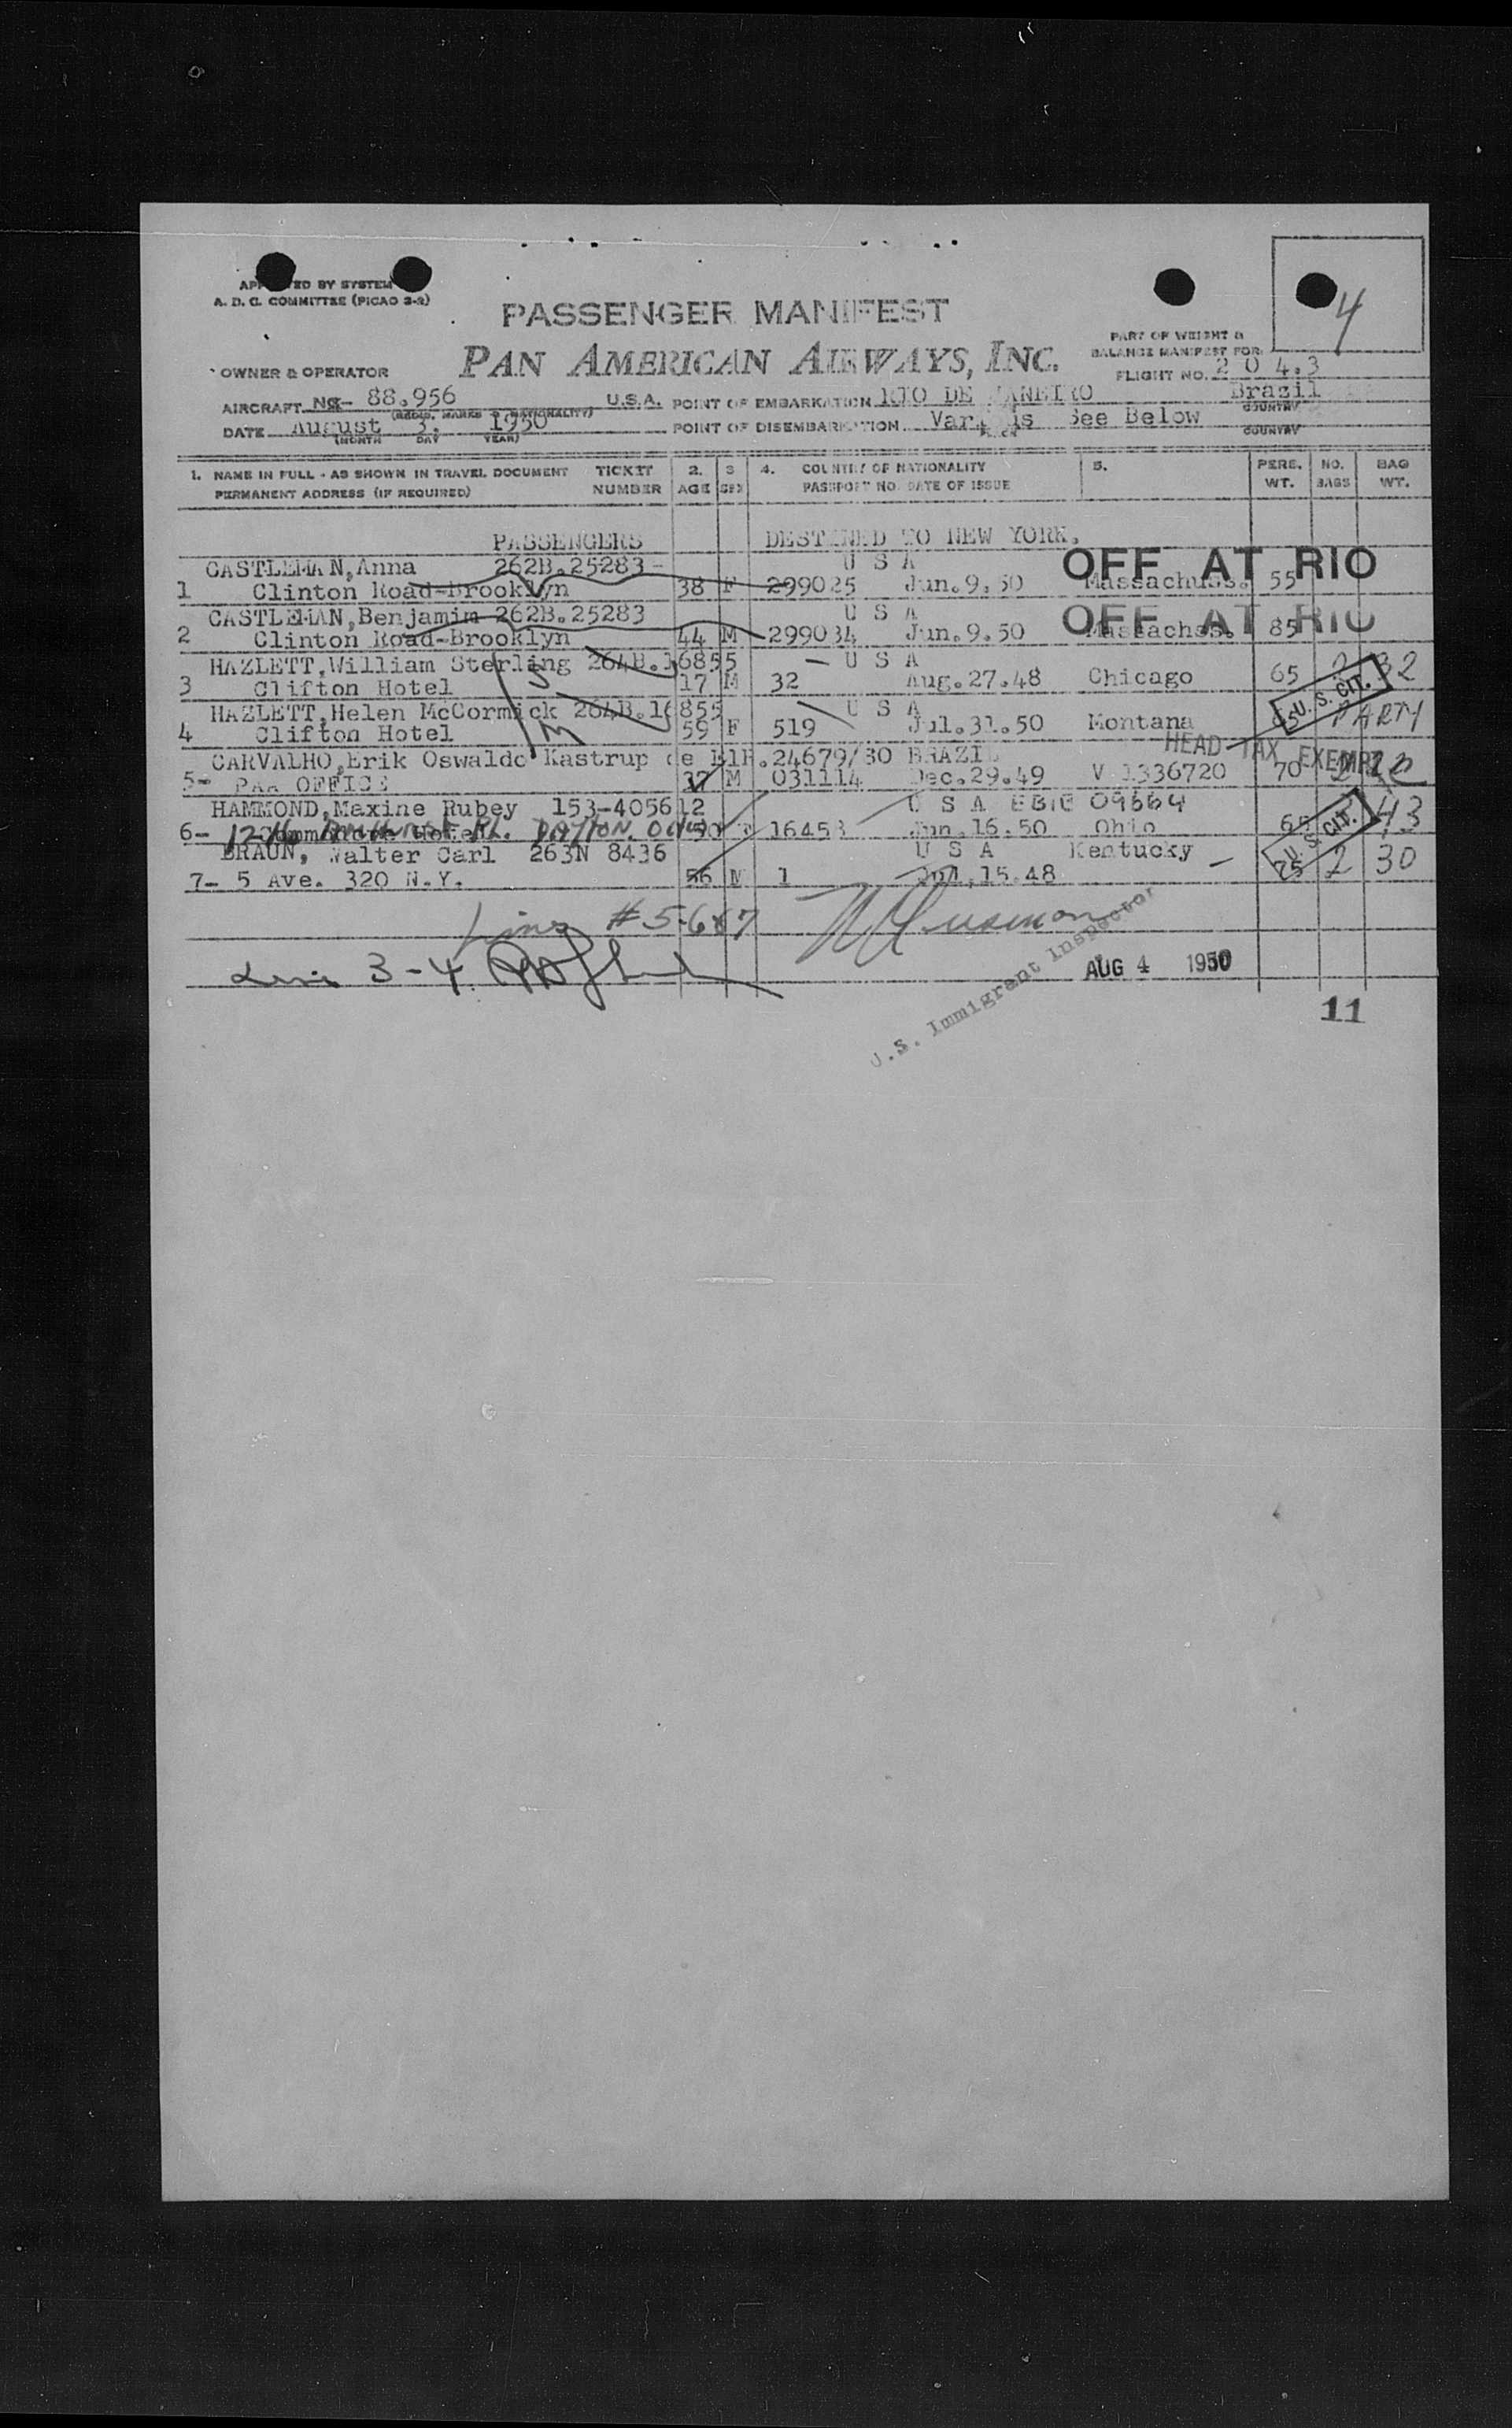 4
BY SYSTEM
A. D. C. COMMITTEE (PICAO 3-2)
PASSENGER MANIFEST
PART OF WEIGHT &
BALANCE MANIFEST FOR:
OWNER & OPERATOR
PAN AMERICAN AIRWAYS, INC.
FLIGHT NO. 2 0 4.3
AIRCRAFT 88.956 U.S.A. POINT OF EMBARKATION RIO DE JANEIRO Brazil
(REGIS. MARKS & NATIONALITY) COUNTRY
DATE August 3, 1950 POINT OF DISEMBARKATION See Below
(MONTH DAY YEAR) PLACE COUNTRY
1. NAME IN FULL - AS SHOWN IN TRAVEL DOCUMENT TICKET 2. 3 4. COUNTRY OF NATIONALITY 5. PERS. NO. BAG
PERMANENT ADDRESS (IF REQUIRED) NUMBER AGE SEX PASSPORT NO. DATE OF ISSUE WT. BAGS WT.
PASSENGERS DESTINED TO NEW YORK.
CASTLEMAN,Anna 262B.25283- U S A OFF AT RIO
1 Clinton Road-Brooklyn 38 F 299025 Jun.9.50 Massachuss. 55
CASTLEMAN,Benjamim 262B.25283 U S A OFF AT RIO
2 Clinton Road-Brooklyn 44 M 299034 Jun.9.50 Massachss. 85
HAZLETT,William Sterling 264B.16855 U S A
3 Clifton Hotel 17 M 32 Aug.27.48 Chicago 65 2 32
S
U. S. CIT.
HAZLETT,Helen McCormick 264B.16855 U S A
4 Clifton Hotel 59 F 519 Jul.31.50 Montana PARTY
M
HEAD TAX EXEMPT
CARVALHO,Erik Oswaldo Kastrup de 24679/80 BRAZIL
5- PAA OFFICE 37 M 031114 Dec.29.49 V 1336720 70
HAMMOND,Maxine Rubey 153-405612 U S A 09664
6- PL. DAYTON, OHIO 16453 Jun.16.50 Ohio 43
U. S. CIT.
BRAUN, Walter Carl 263N 8436 U S A Kentucky
7- 5 Ave. 320 N.Y. 56 M 1 Jul,15.48 75 2 30
Lines # 5-6&7
Line 3-4
U.S. Immigrant Inspector
AUG 4 1950
11